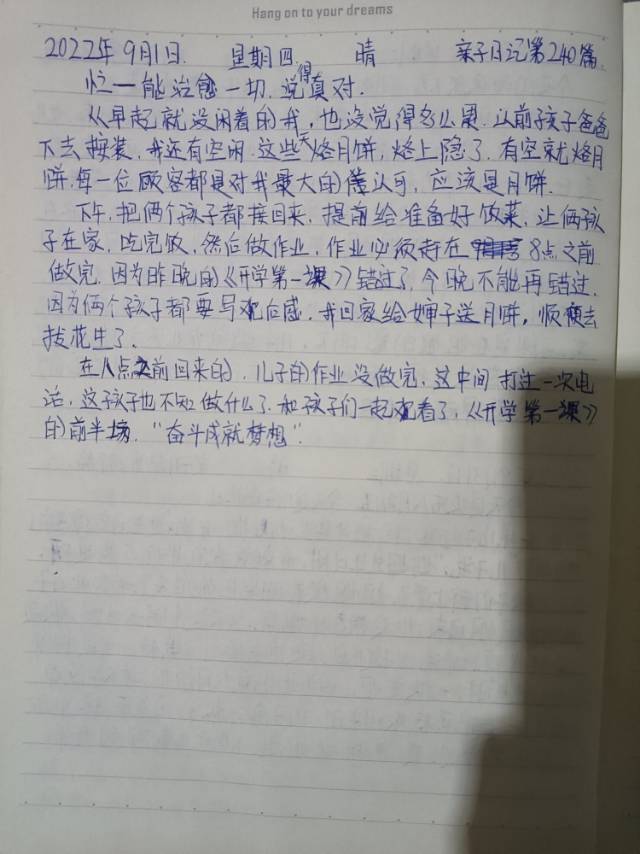 Hang on to your dreams
2022年9月1日. 星期四 晴 亲子日记第240篇.
忙一能治愈一切. 说得真对.
从早起就没闲着的我, 也没觉得多么累. 以前孩子爸爸
下去按装, 我还有空闲. 这些天烙月饼, 烙上隐了. 有空就烙月
饼, 每一位顾客都是对我最大的认可, 应该是月饼.
下午, 把俩个孩子都接回来, 提前给准备好饭菜, 让俩孩
子在家, 吃完饭, 然后做作业, 作业必须在8点之前
做完, 因为昨晚的《开学第一课》错过了, 今晚不能再错过.
因为俩个孩子都要写观后感. 我回家给婶子送月饼, 顺便去
拔花生了.
在八点之前回来的, 儿子的作业没做完, 这中间打过一次电
话, 这孩子也不知做什么了. 和孩子们一起观看了, 《开学第一课》
的前半场. "奋斗成就梦想".